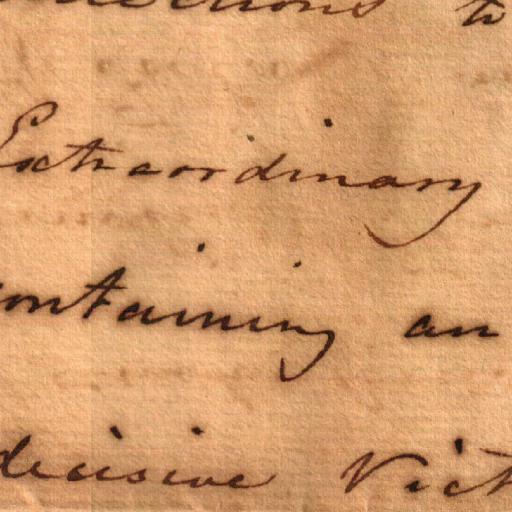 to
Extraordinary
containing an
decisive Vict